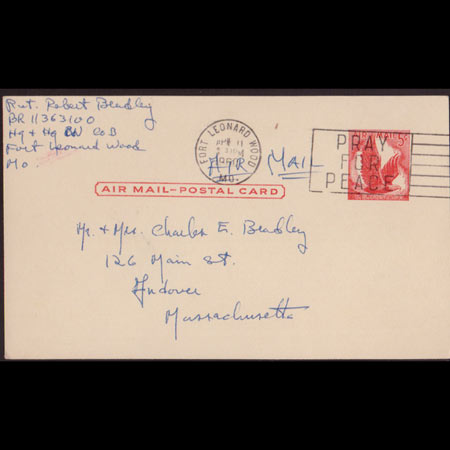 Pvt. Robert Bradley
BR 11363100
Hq & Hq Co B
Fort Leonard Wood
Mo.
FORT LEONARD WOOD
MO.
PRAY
FOR
PEACE
5¢
AIR MAIL
AIR MAIL–POSTAL CARD
Mr. & Mrs. Charles E. Bradley
126 Main St.
Andover
Massachusetts